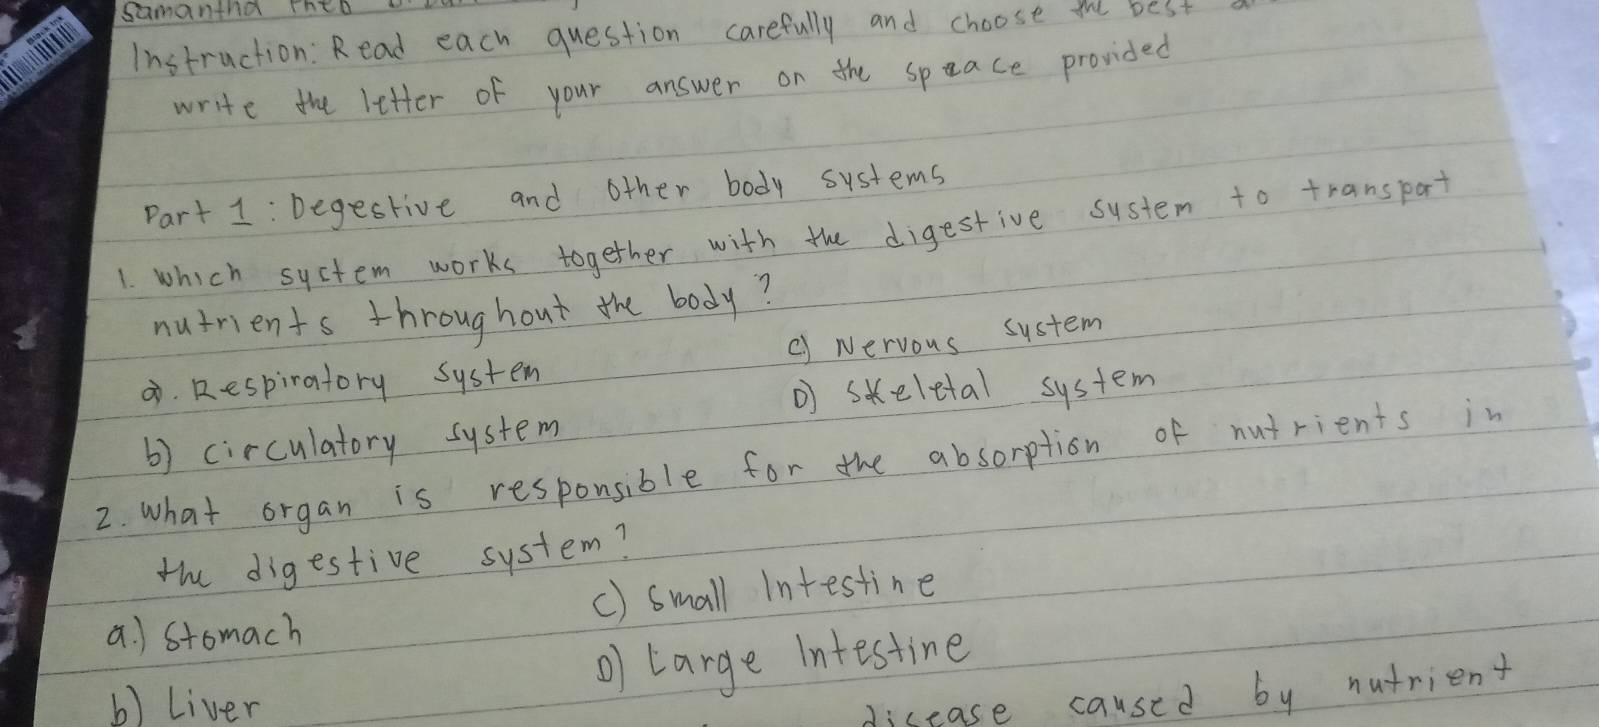 Samantha
Instruction: Read each question carefully and choose the best
write the letter of your answer on the space provided
Part 1: Degestive and Other body systems
1. Which syctem works together with the digestive system to transport
nutrients throughout the body?
a. Respiratory system c) Nervous system
b) circulatory system D) Skeletal system
2. What organ is responsible for the absorption of nutrients in
the digestive system?
a.) Stomach c) Small Intestine
b) Liver D) Large Intestine
disease caused by nutrient